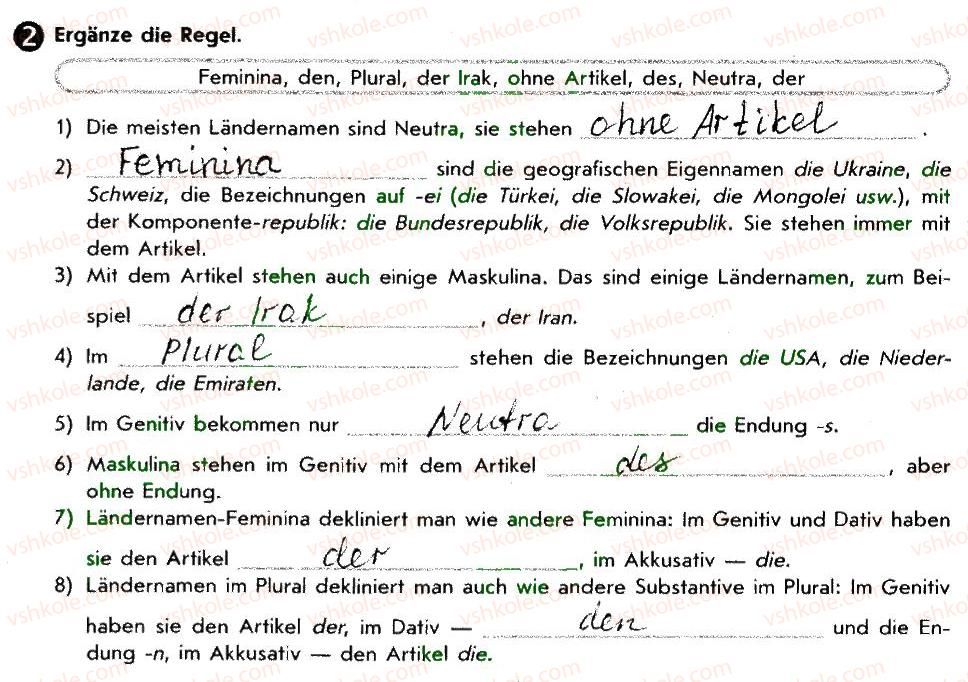 2 Ergänze die Regel.
Feminina, den, Plural, der Irak, ohne Artikel, des, Neutra, der
1) Die meisten Ländernamen sind Neutra, sie stehen ohne Artikel.
2) Feminina sind die geografischen Eigennamen die Ukraine, die
Schweiz, die Bezeichnungen auf -ei (die Türkei, die Slowakei, die Mongolei usw.), mit
der Komponente-republik: die Bundesrepublik, die Volksrepublik. Sie stehen immer mit
dem Artikel.
3) Mit dem Artikel stehen auch einige Maskulina. Das sind einige Ländernamen, zum Bei-
spiel der Irak, der Iran.
4) Im Plural stehen die Bezeichnungen die USA, die Nieder-
lande, die Emiraten.
5) Im Genitiv bekommen nur Neutra die Endung -s.
6) Maskulina stehen im Genitiv mit dem Artikel des, aber
ohne Endung.
7) Ländernamen-Feminina dekliniert man wie andere Feminina: Im Genitiv und Dativ haben
sie den Artikel der, im Akkusativ — die.
8) Ländernamen im Plural dekliniert man auch wie andere Substantive im Plural: Im Genitiv
haben sie den Artikel der, im Dativ — den und die En-
dung -n, im Akkusativ — den Artikel die.